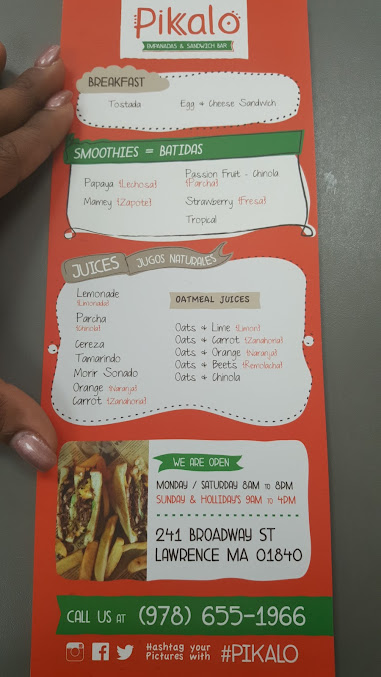 Pikalo
EMPANADAS & SANDWICH BAR
BREAKFAST
Tostada
Egg & Cheese Sandwich
SMOOTHIES = BATIDAS
Papaya {Lechosa}
Mamey {Zapote}
Passion Fruit - Chinola
{Parcha}
Strawberry {Fresa}
Tropical
JUICES
JUGOS NATURALES
Lemonade
{Limonada}
Parcha
{Chinola}
Cereza
Tamarindo
Morir Sonado
Orange {Naranja}
Carrot {Zanahoria}
OATMEAL JUICES
Oats & Lime {Limon}
Oats & Carrot {Zanahoria}
Oats & Orange {Naranja}
Oats & Beets {Remolacha}
Oats & Chinola
WE ARE OPEN
MONDAY / SATURDAY 8AM TO 8PM
SUNDAY & HOLLIDAY'S 9AM TO 4PM
241 BROADWAY ST
LAWRENCE MA 01840
CALL US AT (978) 655-1966
Hashtag your
Pictures with #PIKALO